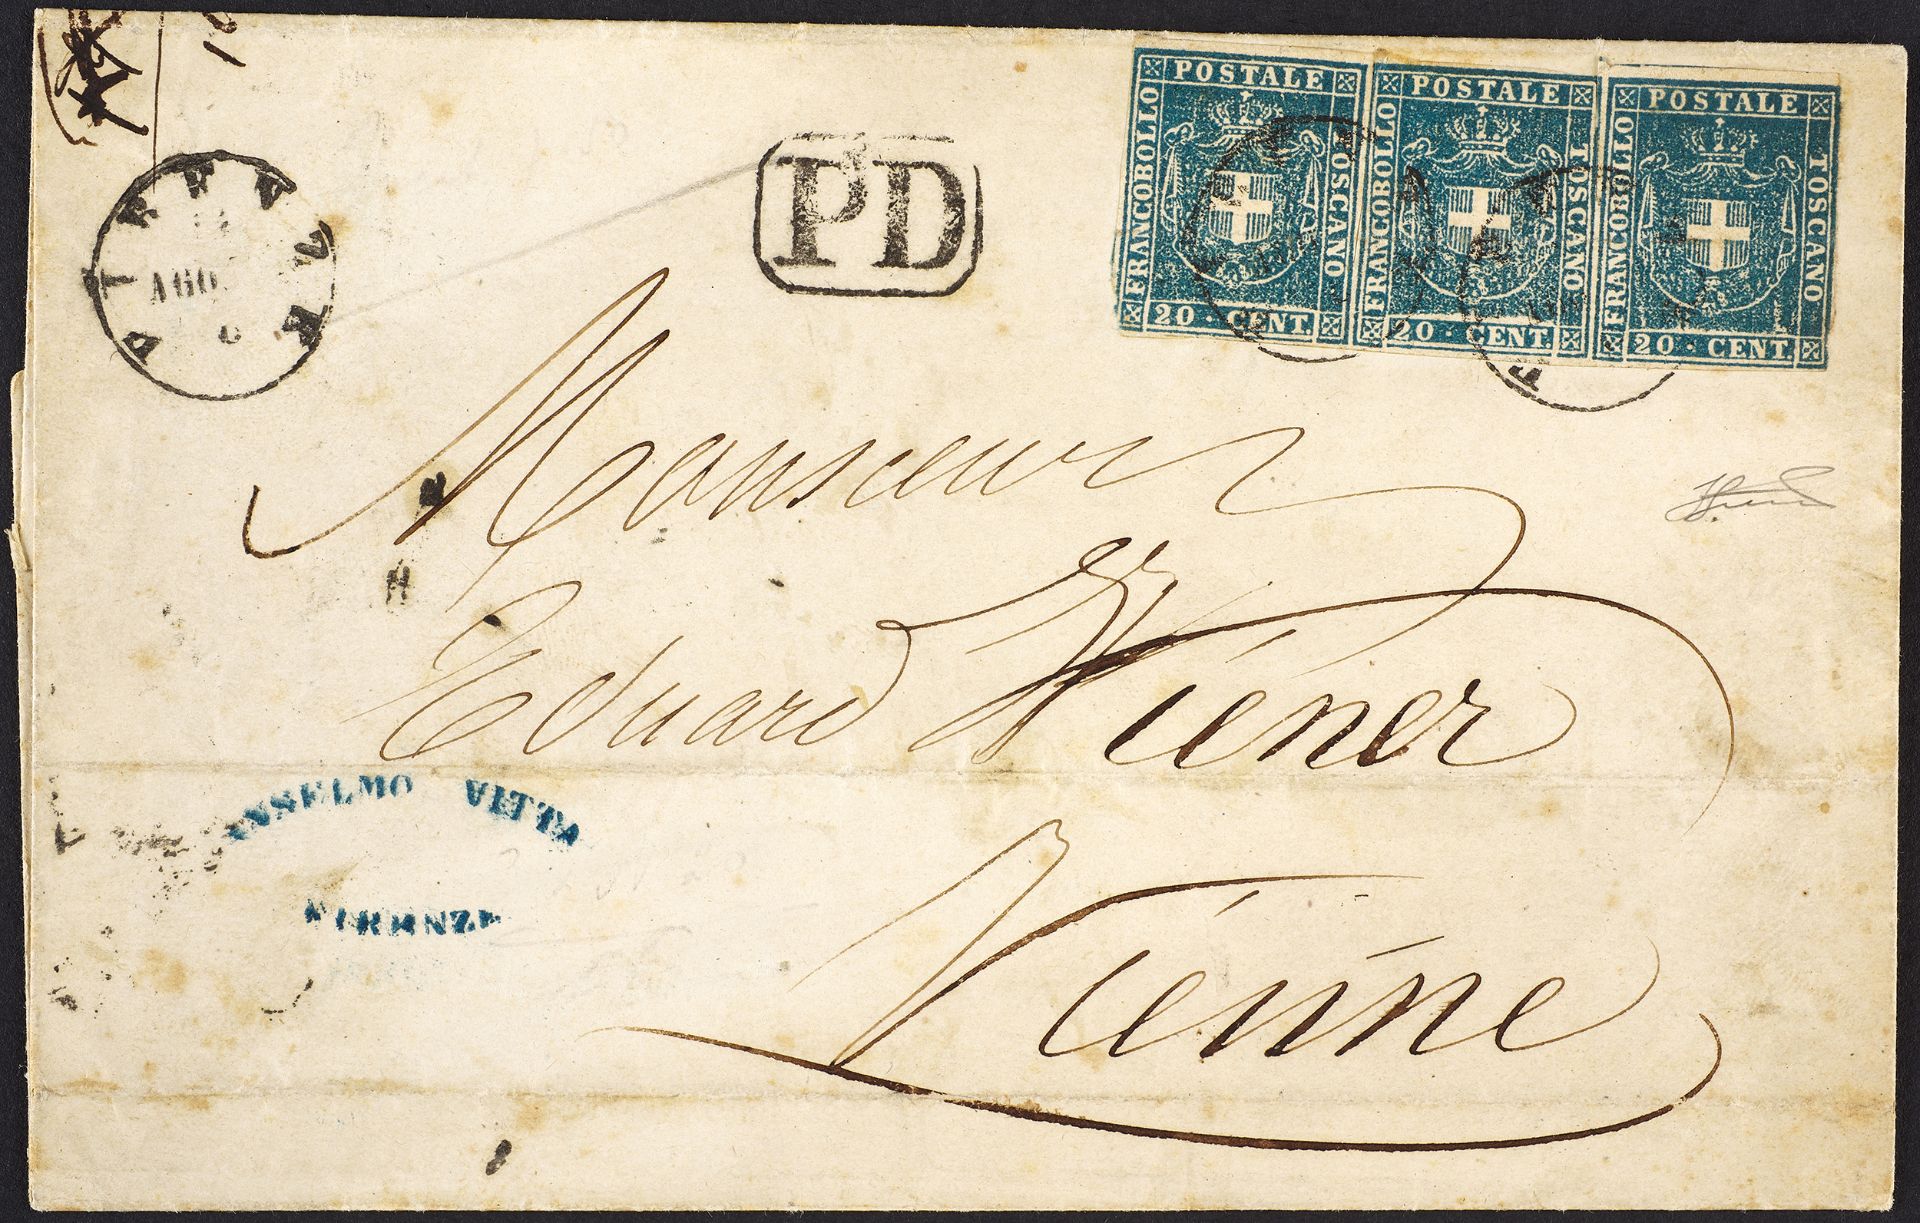 FRANCOBOLLO POSTALE TOSCANO
20 · CENT.
FRANCOBOLLO POSTALE TOSCANO
20 · CENT.
FRANCOBOLLO POSTALE TOSCANO
20 · CENT.
PD
FIRENZE
AGO
Monsieur
Eduard Wiener
ANSELMO VITTA
FIRENZE
Vienne